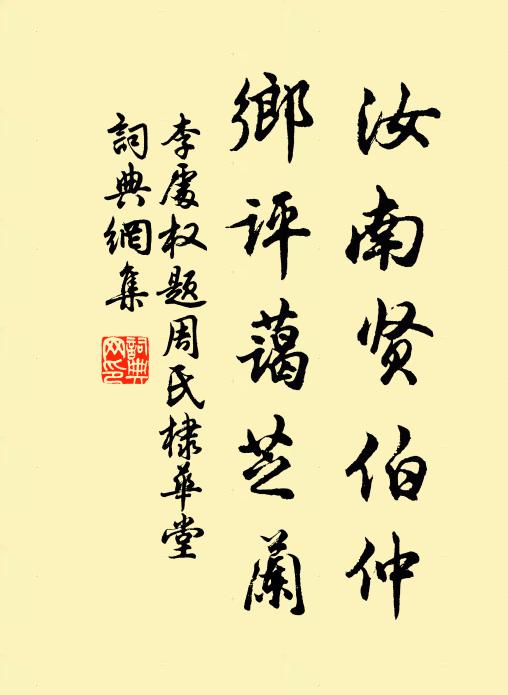 汝南贤伯仲
鄉评藹芝蘭
李處权题周氏棣華堂
詞典網集
詞典網印